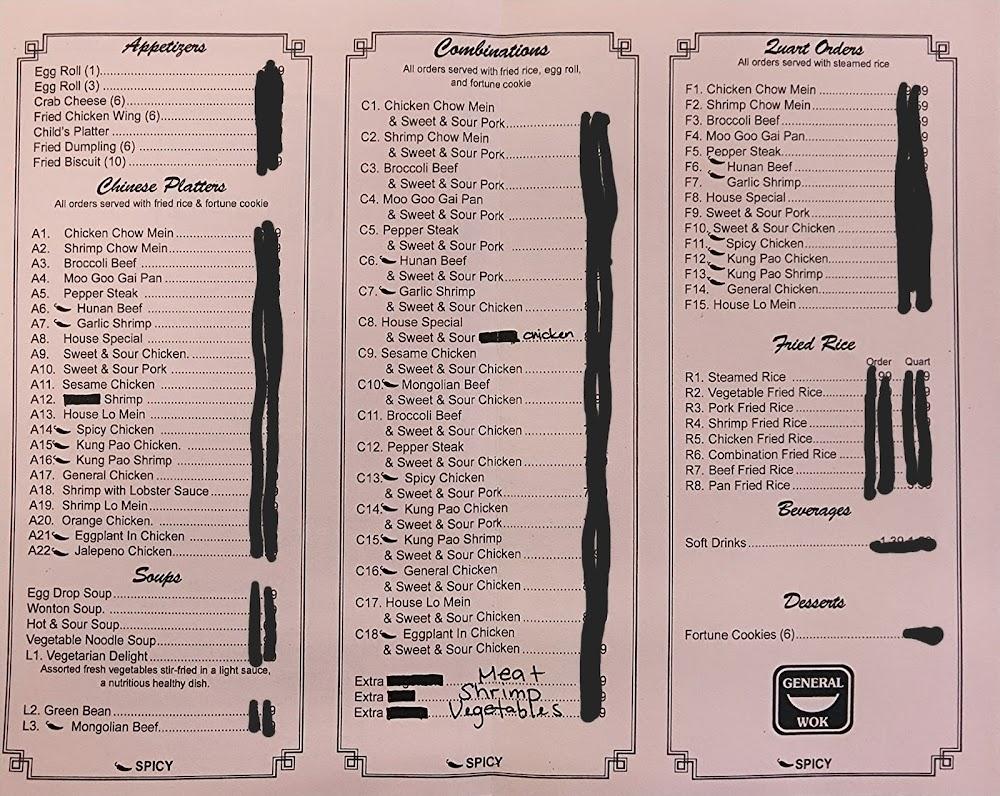 Appetizers
Egg Roll (1)
Egg Roll (3)
Crab Cheese (6)
Fried Chicken Wing (6)
Child's Platter
Fried Dumpling (6)
Fried Biscuit (10)
Chinese Platters
All orders served with fried rice & fortune cookie
A1. Chicken Chow Mein
A2. Shrimp Chow Mein
A3. Broccoli Beef
A4. Moo Goo Gai Pan
A5. Pepper Steak
A6. Hunan Beef
A7. Garlic Shrimp
A8. House Special
A9. Sweet & Sour Chicken.
A10. Sweet & Sour Pork
A11. Sesame Chicken
A12. Shrimp
A13. House Lo Mein
A14. Spicy Chicken
A15. Kung Pao Chicken.
A16. Kung Pao Shrimp
A17. General Chicken
A18. Shrimp with Lobster Sauce
A19. Shrimp Lo Mein
A20. Orange Chicken.
A21. Eggplant In Chicken
A22. Jalepeno Chicken
Soups
Egg Drop Soup
Wonton Soup.
Hot & Sour Soup
Vegetable Noodle Soup
L1. Vegetarian Delight
Assorted fresh vegetables stir-fried in a light sauce,
a nutritious healthy dish.
L2. Green Bean
L3. Mongolian Beef
SPICY
Combinations
All orders served with fried rice, egg roll,
and fortune cookie
C1. Chicken Chow Mein
& Sweet & Sour Pork
C2. Shrimp Chow Mein
& Sweet & Sour Pork
C3. Broccoli Beef
& Sweet & Sour Pork
C4. Moo Goo Gai Pan
& Sweet & Sour Pork
C5. Pepper Steak
& Sweet & Sour Pork
C6. Hunan Beef
& Sweet & Sour Pork
C7. Garlic Shrimp
& Sweet & Sour Chicken
C8. House Special
& Sweet & Sour chicken
C9. Sesame Chicken
& Sweet & Sour Chicken
C10. Mongolian Beef
& Sweet & Sour Chicken
C11. Broccoli Beef
& Sweet & Sour Chicken
C12. Pepper Steak
& Sweet & Sour Chicken
C13. Spicy Chicken
& Sweet & Sour Pork
C14. Kung Pao Chicken
& Sweet & Sour Pork
C15. Kung Pao Shrimp
& Sweet & Sour Chicken
C16. General Chicken
& Sweet & Sour Chicken
C17. House Lo Mein
& Sweet & Sour Chicken
C18 Eggplant In Chicken
& Sweet & Sour Chicken
Extra Meat
Extra Shrimp
Extra Vegetables
SPICY
Quart Orders
All orders served with steamed rice
F1. Chicken Chow Mein
F2. Shrimp Chow Mein
F3. Broccoli Beef
F4. Moo Goo Gai Pan
F5. Pepper Steak
F6. Hunan Beef
F7. Garlic Shrimp
F8. House Special
F9. Sweet & Sour Pork
F10. Sweet & Sour Chicken
F11. Spicy Chicken
F12. Kung Pao Chicken
F13. Kung Pao Shrimp
F14. General Chicken
F15. House Lo Mein
Fried Rice
Order Quart
R1. Steamed Rice
R2. Vegetable Fried Rice
R3. Pork Fried Rice
R4. Shrimp Fried Rice
R5. Chicken Fried Rice
R6. Combination Fried Rice
R7. Beef Fried Rice
R8. Pan Fried Rice
Beverages
Soft Drinks
Desserts
Fortune Cookies (6)
GENERAL
WOK
SPICY